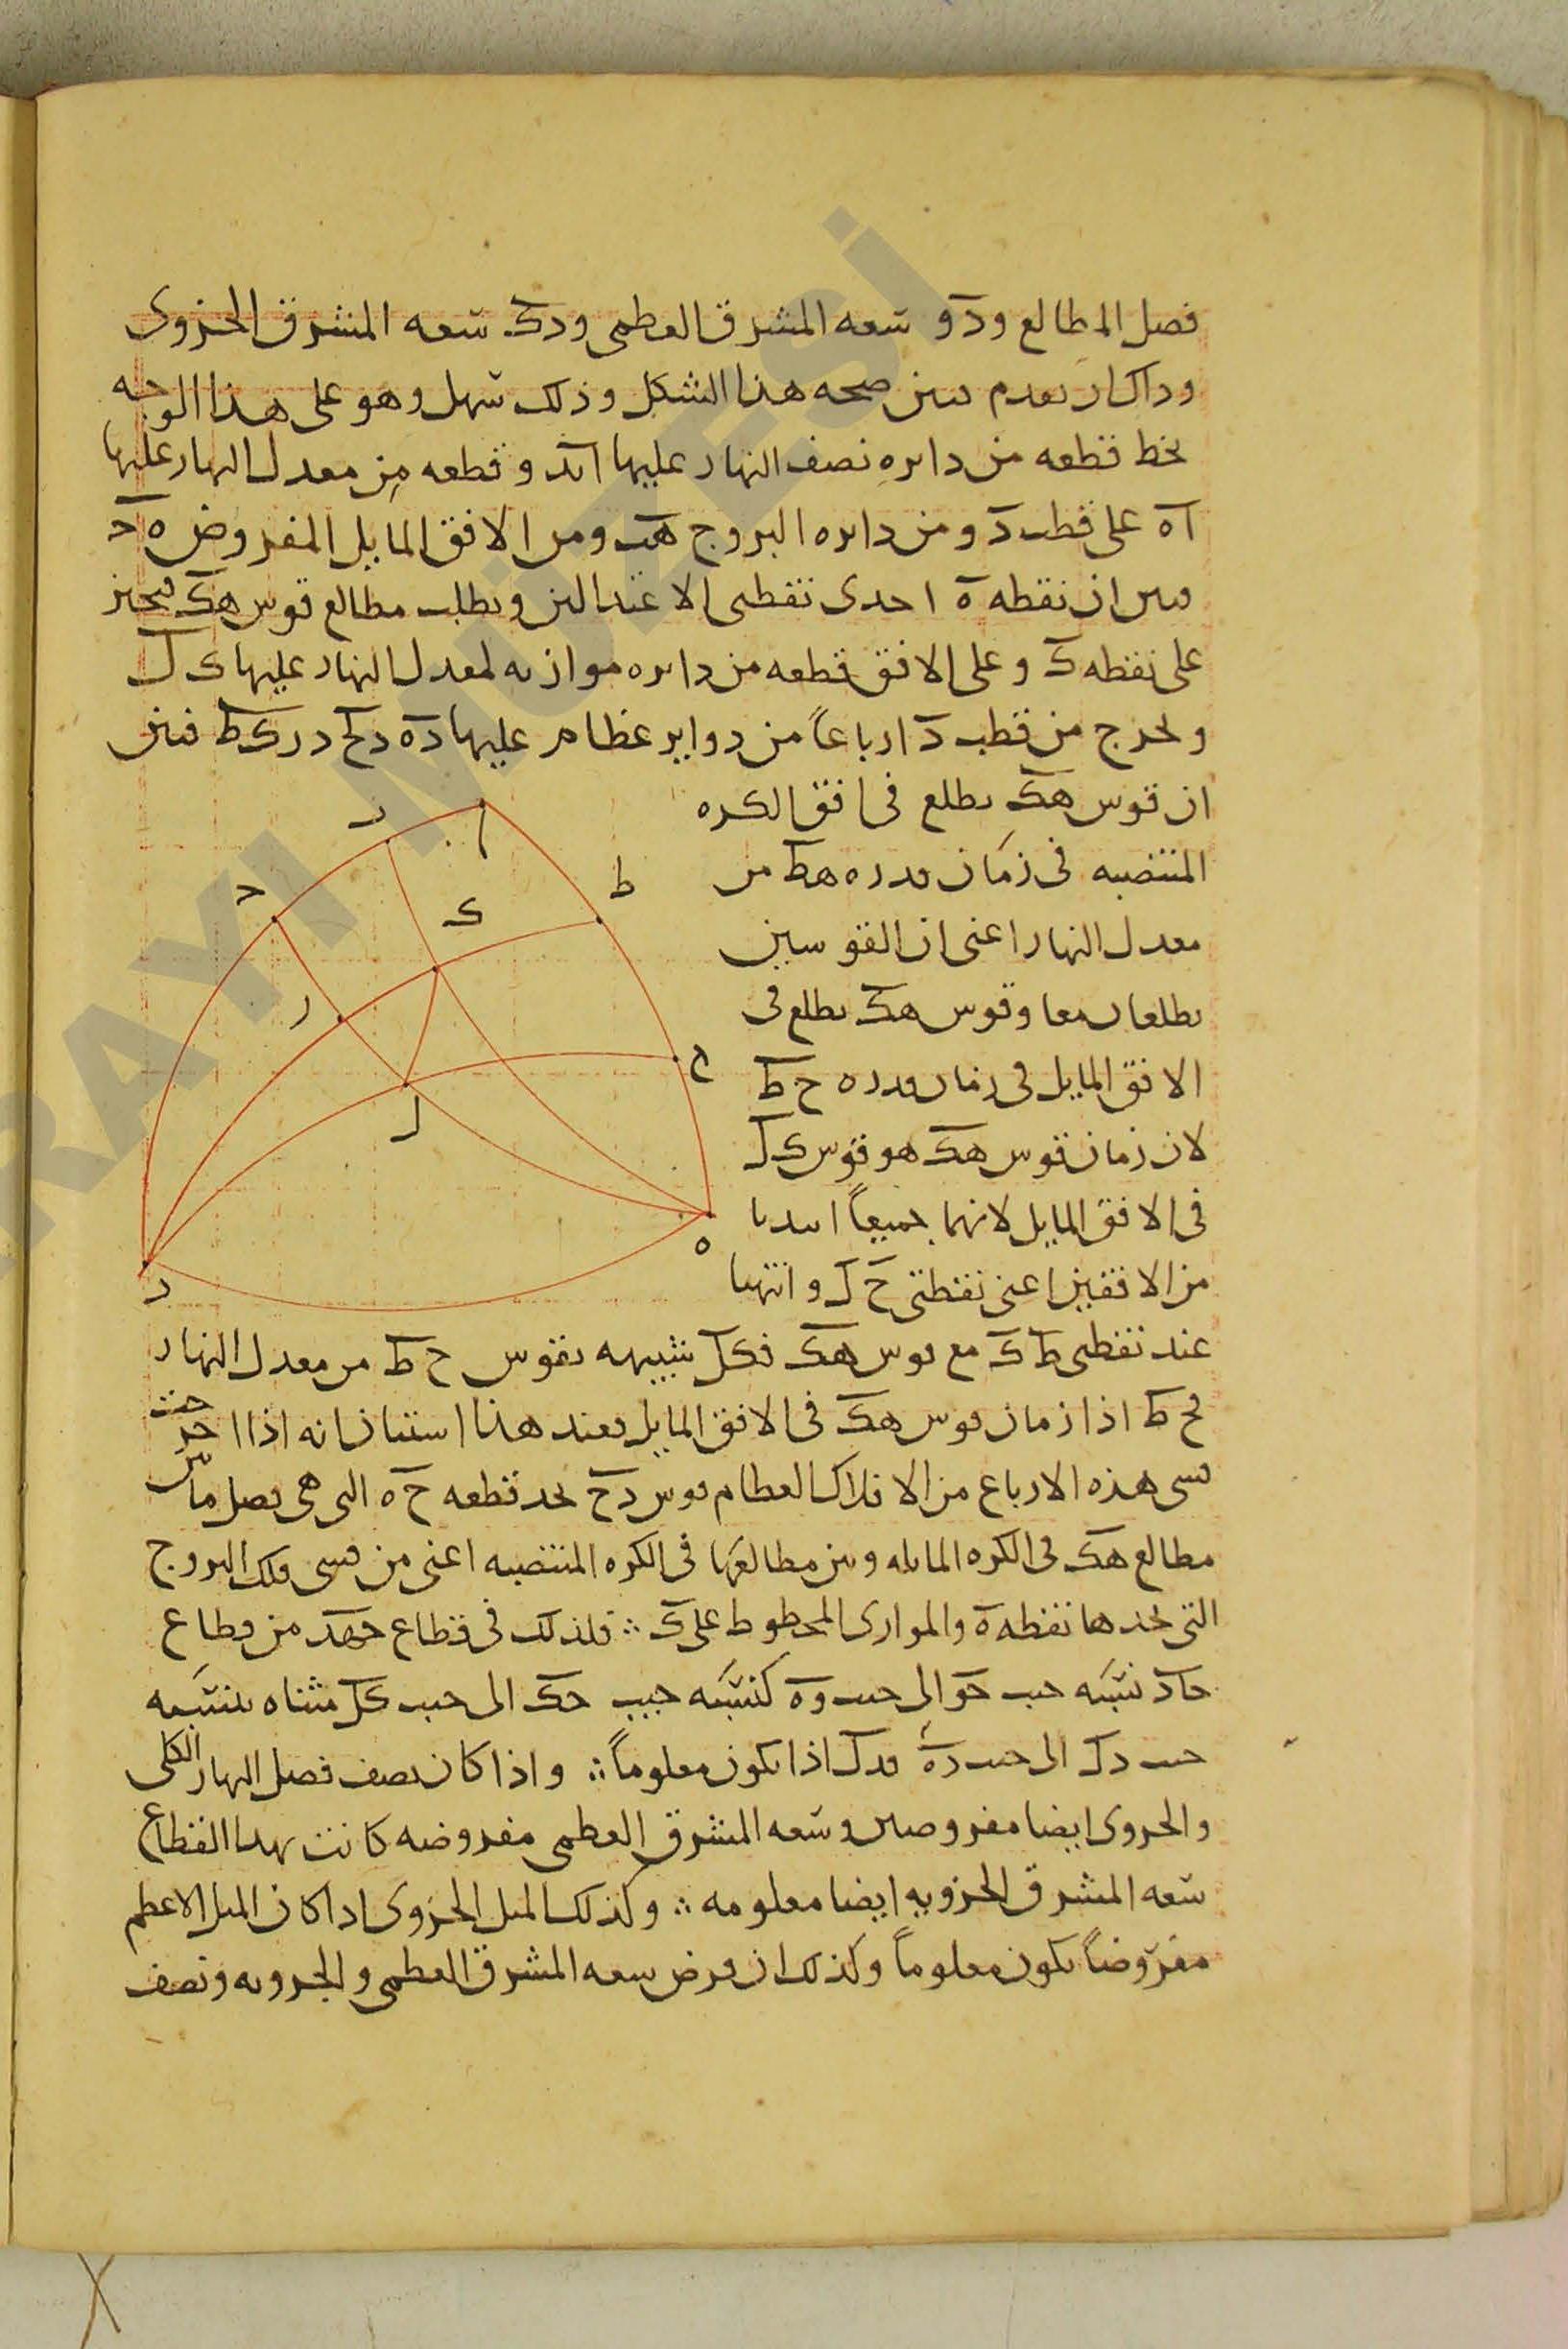 فصل المطالع ودو سعه المشرق العظمى ودك سعه المشرق الجزوى
وذلك ان نعدم نبين صحه هذا الشكل وذلك سهل وهو على هذا الوجه
نخط قطعه من دايره نصف النهار عليها ابد وقطعه من معدل النهار عليها
اه على قطب د ومن دايره البروج هب ومن الافق المايل المفروض ه ح
نبين ان نقطه ه احدى نقطتى الاعتدالين ونطلب مطالع قوس هك فنجيز
على نقطه ك وعلى الافق قطعه من دايره موازيه لمعدل النهار عليها ك ل
ونخرج من قطب د ارباعاً من دواير عظام عليها ده دلح درك ط فبين
ان قوس هك يطلع فى افق الكره
المنتصبه فى زمان قدره هط من
معدل النهار اعنى ان القوسين
يطلعان معا وقوس هك يطلع فى
الافق المايل فى زمان قدره ح ط
لان زمان قوس هك هو قوس ك ل
فى الافق المايل لانهما جميعاً ابتديا
من الافقين اعنى نقطتى ح ل وانتهيا
عند نقطتى ط ك مع قوس هك فكل شبيهه بقوس ح ط من معدل النهار
فح ط اذا زمان قوس هك فى الافق المايل فعند هذا استبان انه اذا اخرجت
قسى هذه الارباع من الافلاك العظام قوس دح تحد قطعه ح ه التى هى فصل ما بين
مطالع هك فى الكره المايله وبين مطالعها فى الكره المنتصبه اعنى من قسى فلك البروج
التى تحدها نقطه ه والموازى المخطوط على ك ∴ فلذلك فى قطاع حهد من قطاع
حاد نسبه جيب حو الى جيب وه كنسبه جيب حك الى جيب كل مثناه بنسبه
جيب دل الى جيب ده فدل اذا يكون معلوماً ∴ واذا كان نصف فصل النهار الكلى
والجزوى ايضا مفروضين وسعه المشرق العظمى مفروضه كانت بهذا القطاع
سعه المشرق الجزويه ايضا معلومه ∴ وكذلك الميل الجزوى اذا كان الميل الاعظم
مفروضاً يكون معلوماً وكذلك ان فرض سعه المشرق العظمى والجزويه ونصف
ا
ر
ح
ط
ك
ر
ح
ل
ه
د
RAYI MÜZESİ